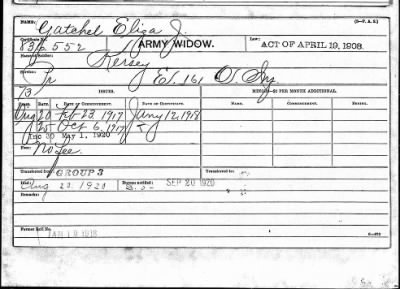 NAME: Gatchel Eliza J. (3—F. A. S.)
Certificate No. 836552 ARMY WIDOW. Law: ACT OF APRIL 19, 1908.
Name of Soldier: Kersey
Service: Pr E, 161 O. Inf
ISSUES. MINORS—$2 PER MONTH ADDITIONAL.
RATE. DATE OF COMMENCEMENT. DATE OF CERTIFICATE. NAMES. COMMENCEMENT. ENDING.
20 Feb 23, 1917 Jany 12, 1918
25 Oct 6, 1917
Inc 30 May 1, 1920
Fees: No fee.
Transferred from GROUP 3 Transferred to
Died: Aug 22, 1920 Bureau notified: SEP 20 1920
Remarks:
Former Roll No. JAN 19 1918